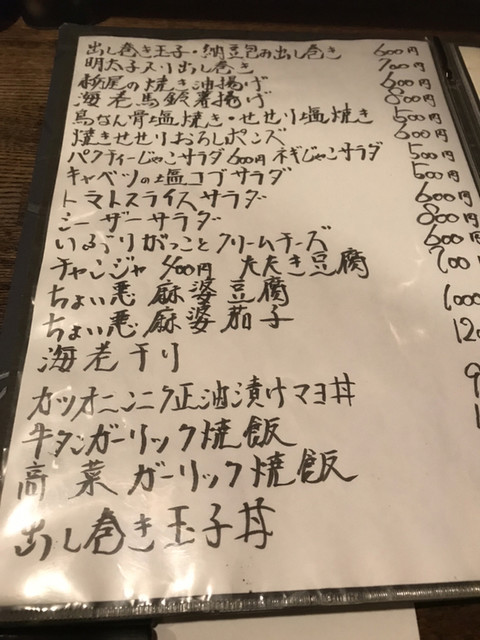 出し巻き玉子・納豆包み出し巻き 600円
明太子入り出し巻き 700円
栃尾の焼き油揚げ 600円
海老馬鈴薯揚げ 800円
鳥なん骨塩焼き・せせり塩焼き 500円
焼きせせりおろしポンズ 600円
パクティーじゃこサラダ600円 ネギじゃこサラダ 500円
キャベツの塩コブサラダ 500円
トマトスライスサラダ 600円
シーザーサラダ 800円
いぶりがっことクリームチーズ 600円
チャンジャ 400円 大たき豆腐 700
ちょい悪麻婆豆腐 1000
ちょい悪麻婆茄子 120
海老チリ
カツオニンニク正油漬けマヨ丼
牛タンガーリック焼飯
高菜ガーリック焼飯
出し巻き玉子丼